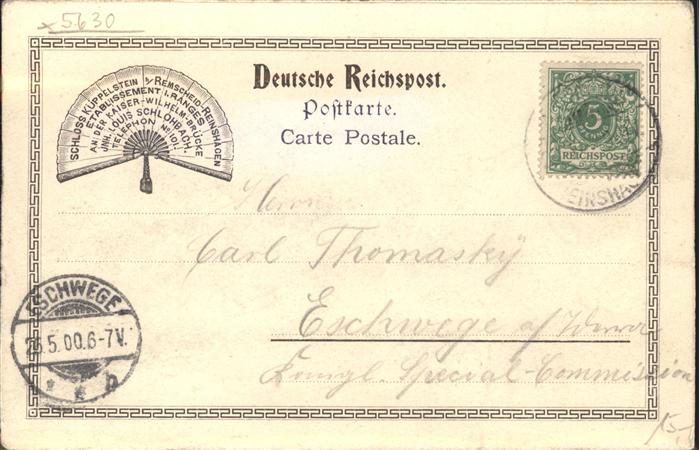 x5630
SCHLOSS KÜPPELSTEIN b/ REMSCHEID-REINSHAGEN
ETABLISSEMENT I. RANGES
AN DER KAISER-WILHELM-BRÜCKE
JNH. LOUIS SCHLOHBACH.
TELEPHON No 101.
Deutsche Reichspost.
Postkarte.
Carte Postale.
5
REICHSPOST
EINSHA
Herrn
Carl Thomasky
Eschwege a/ Werra
Königl. Special-Commission
ESCHWEGE
5.00.6-7V.
* * b